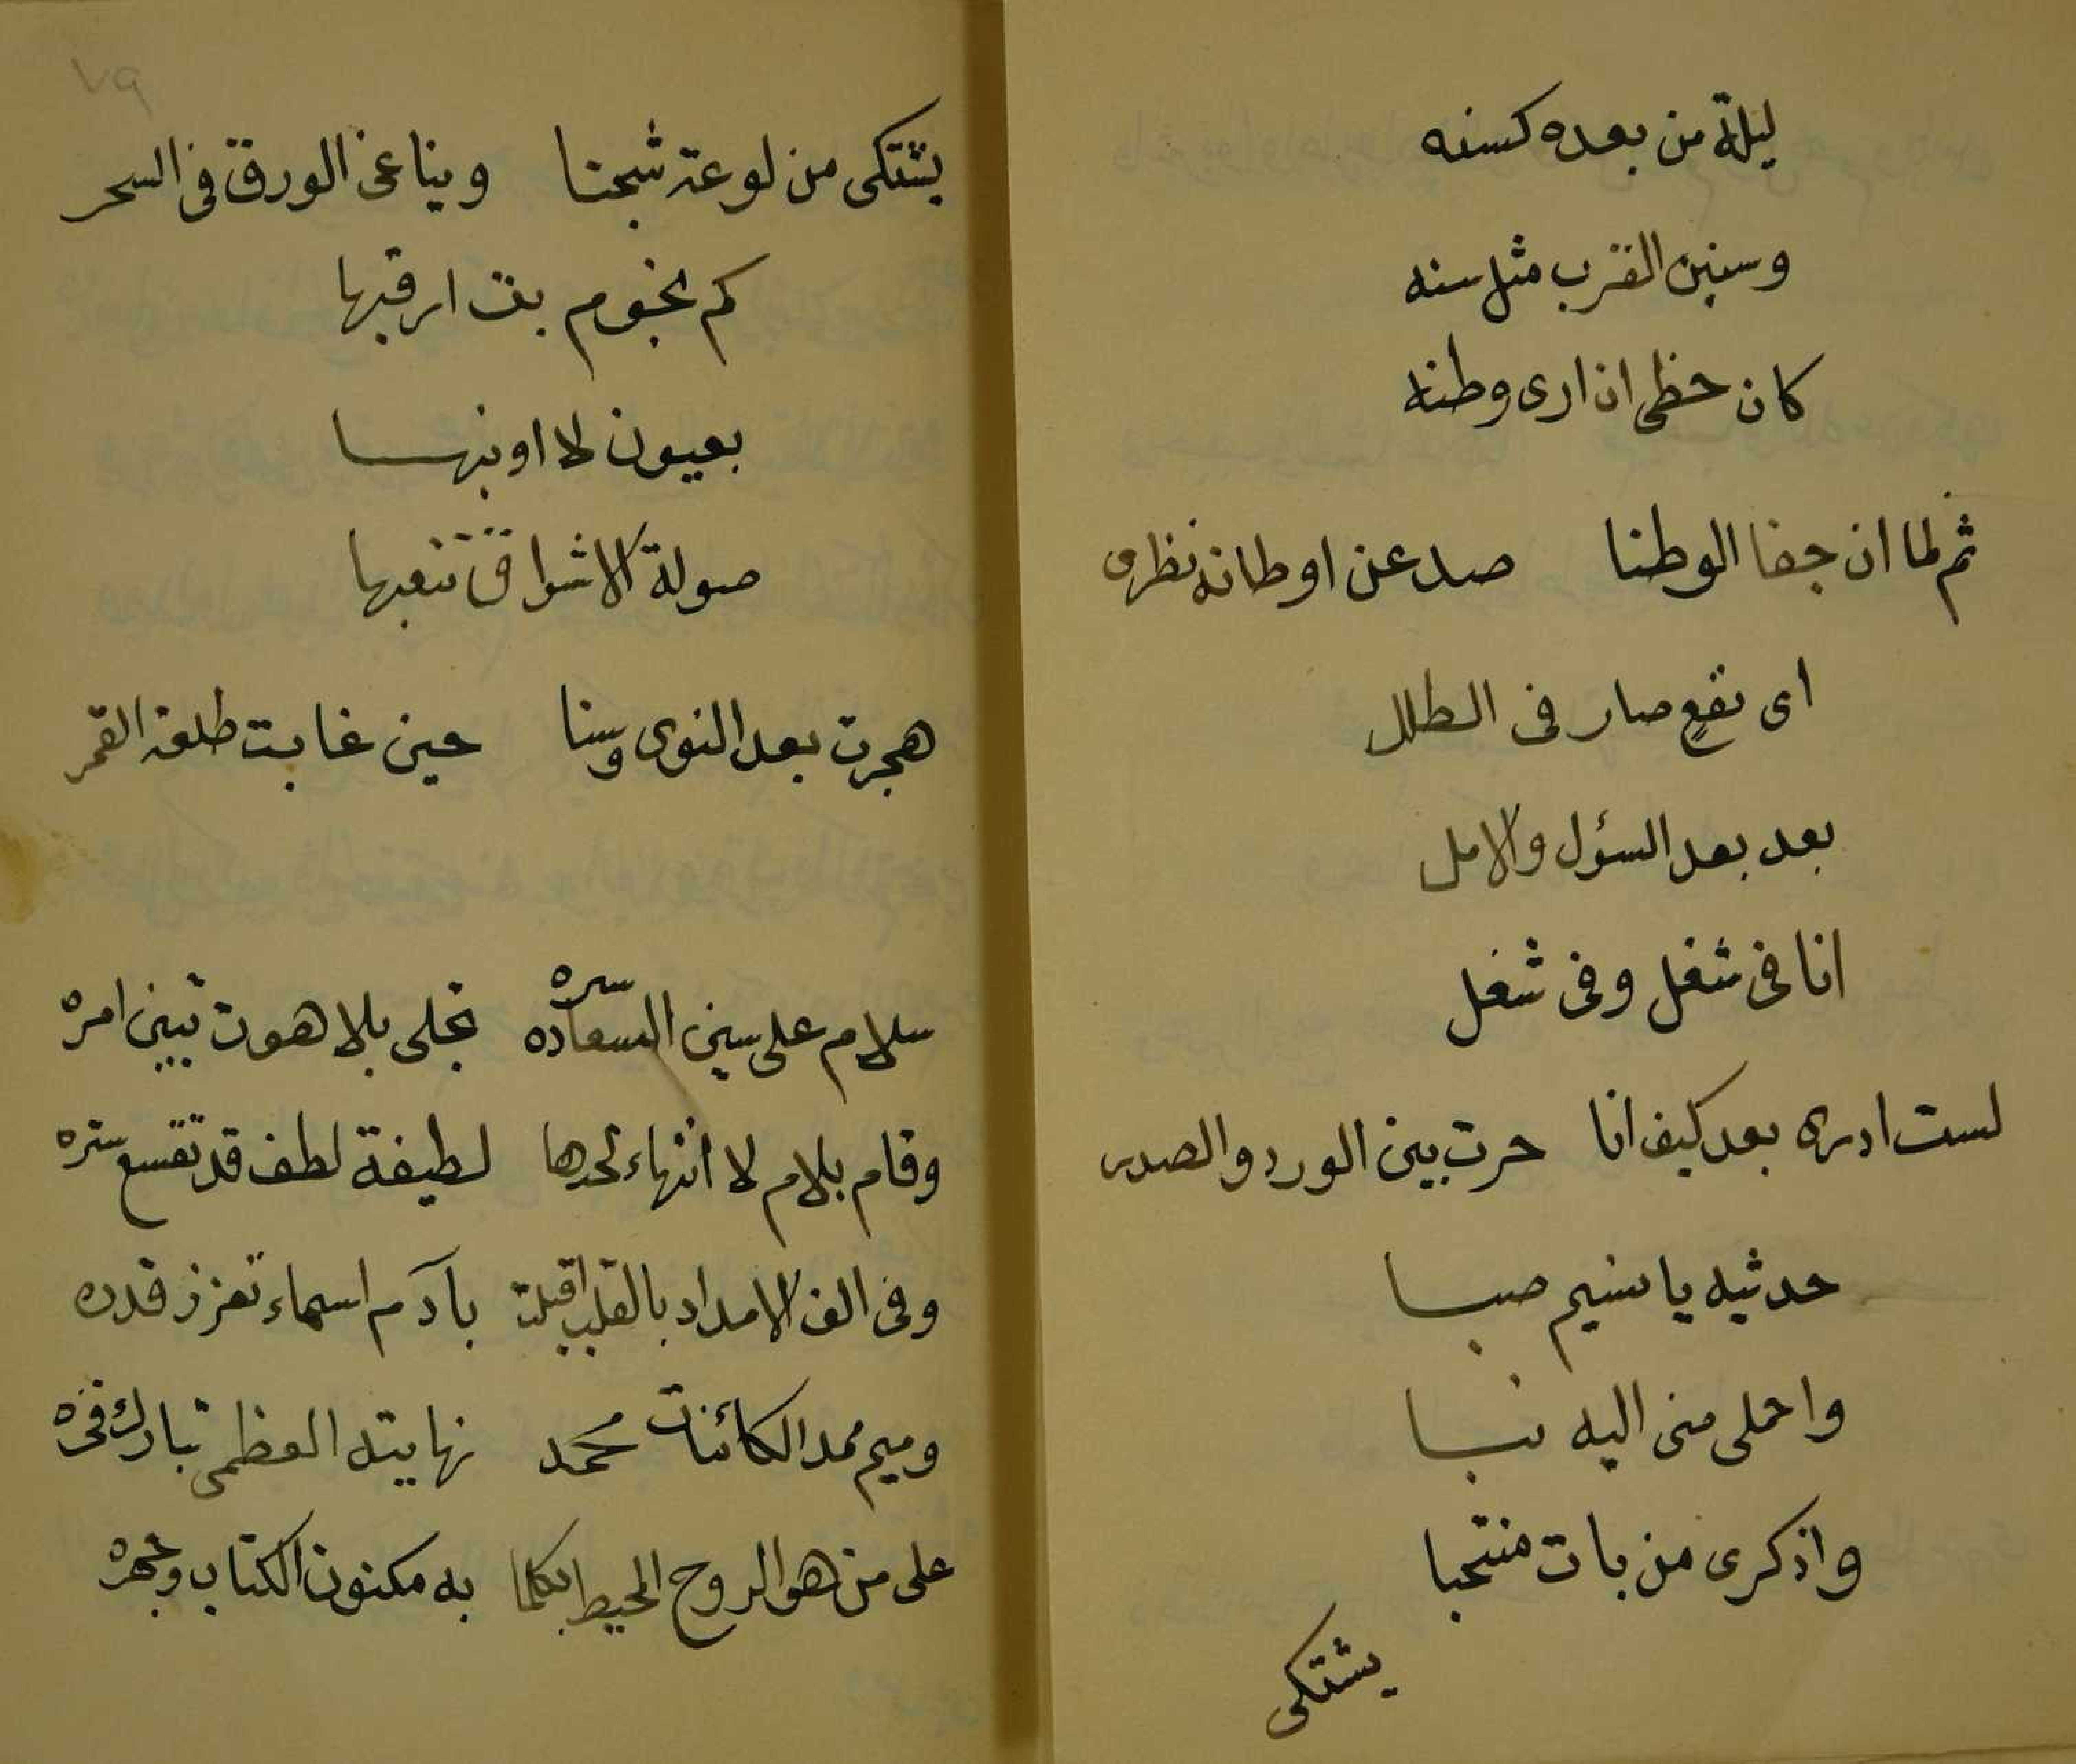 ليلة من بعده كسنه
وسنين القرب مثل سنه
كان حظى ان ارى وطنه
ثم لما ان جفا الوطنا صد عن اوطانه نظرى
اى نفعٍ صار فى الطلل
بعد بعد السؤل والامل
انا فى شغل وفى شغل
لست ادرى بعد كيف انا حرت بين الورد والصدر
حدثيه يا نسيم صبا
واحملى منى اليه نبا
واذكرى من بات منتحبا
يشتكى
٧٩
يشتكى من لوعة شجنا ويناغى الورق فى السحر
كم نجوم بت ارقبها
بعيون لا اونبها
صولة الاشواق تتعبها
هجرت بعد النوى وسنا حين غابت طلعة القمر
سلام على سين السعاده سره تجلى بلاهوت تبين امره
وقام بلام لا انتهاء لحدها لطيفة لطف قد تقسع ستره
وفى الف الامداد بالقلب اقبلت بآدم اسماء تعزز قدره
وميم ممد الكائنات محمد نهايته العظمى تبارك فخره
على من هو الروح المحيط بكلما به مكنون الكتاب وجهره